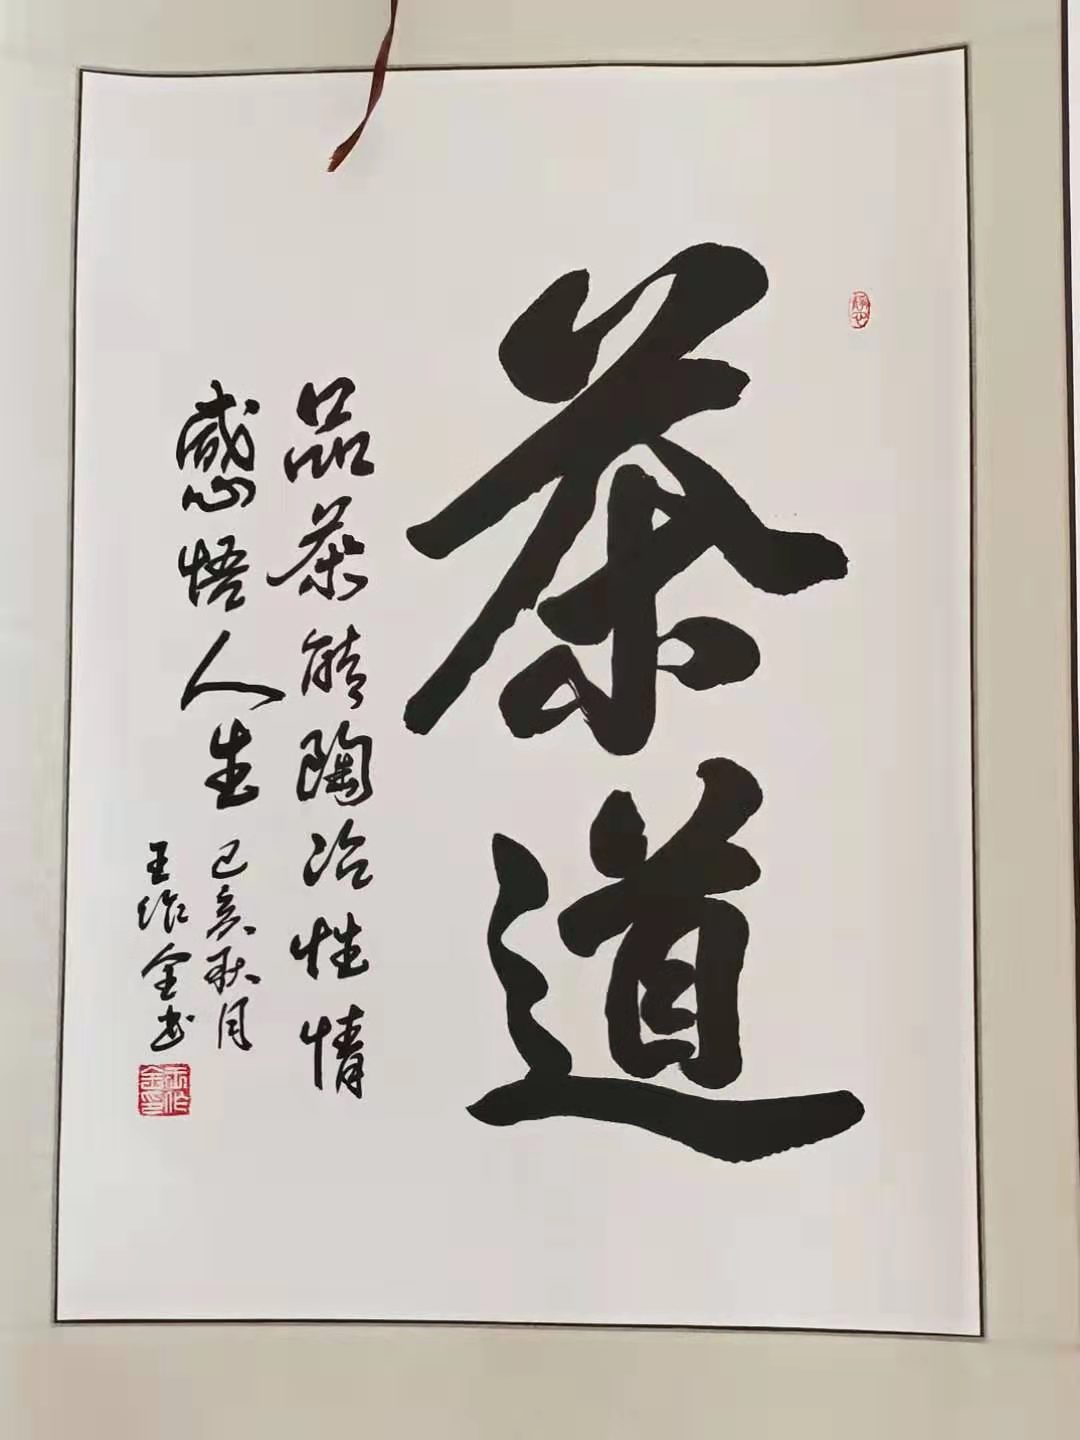 茶道
品茶能陶冶性情
感悟人生
己亥秋月
王作金书
王作金印